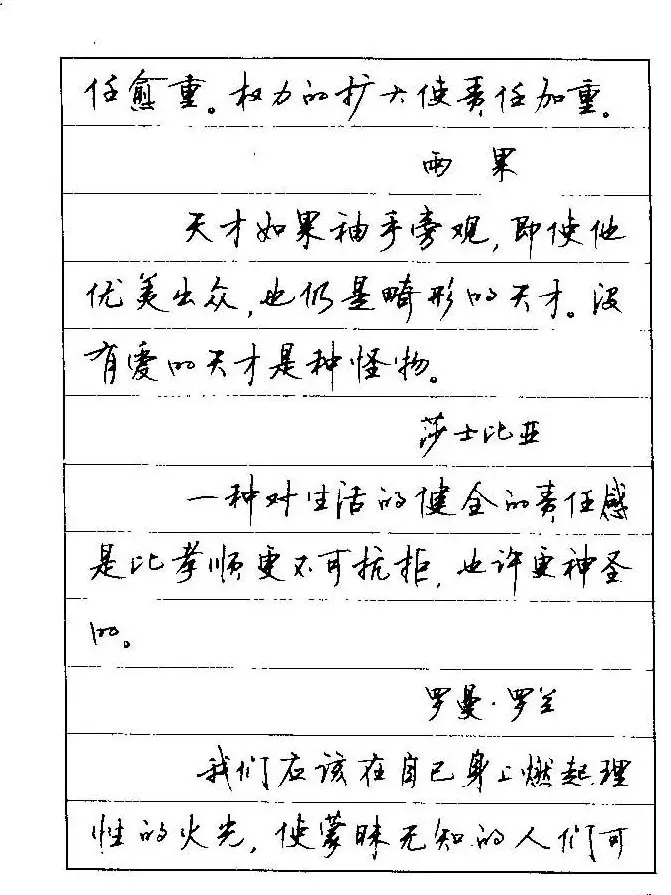 任愈重。权力的扩大使责任加重。
雨果
天才如果袖手旁观,即使他
优美出众,也仍是畸形的天才。没
有爱的天才是种怪物。
莎士比亚
一种对生活的健全的责任感
是比孝顺更不可抗拒,也许更神圣
的。
罗曼·罗兰
我们应该在自己身上燃起理
性的火光,使蒙昧无知的人们可